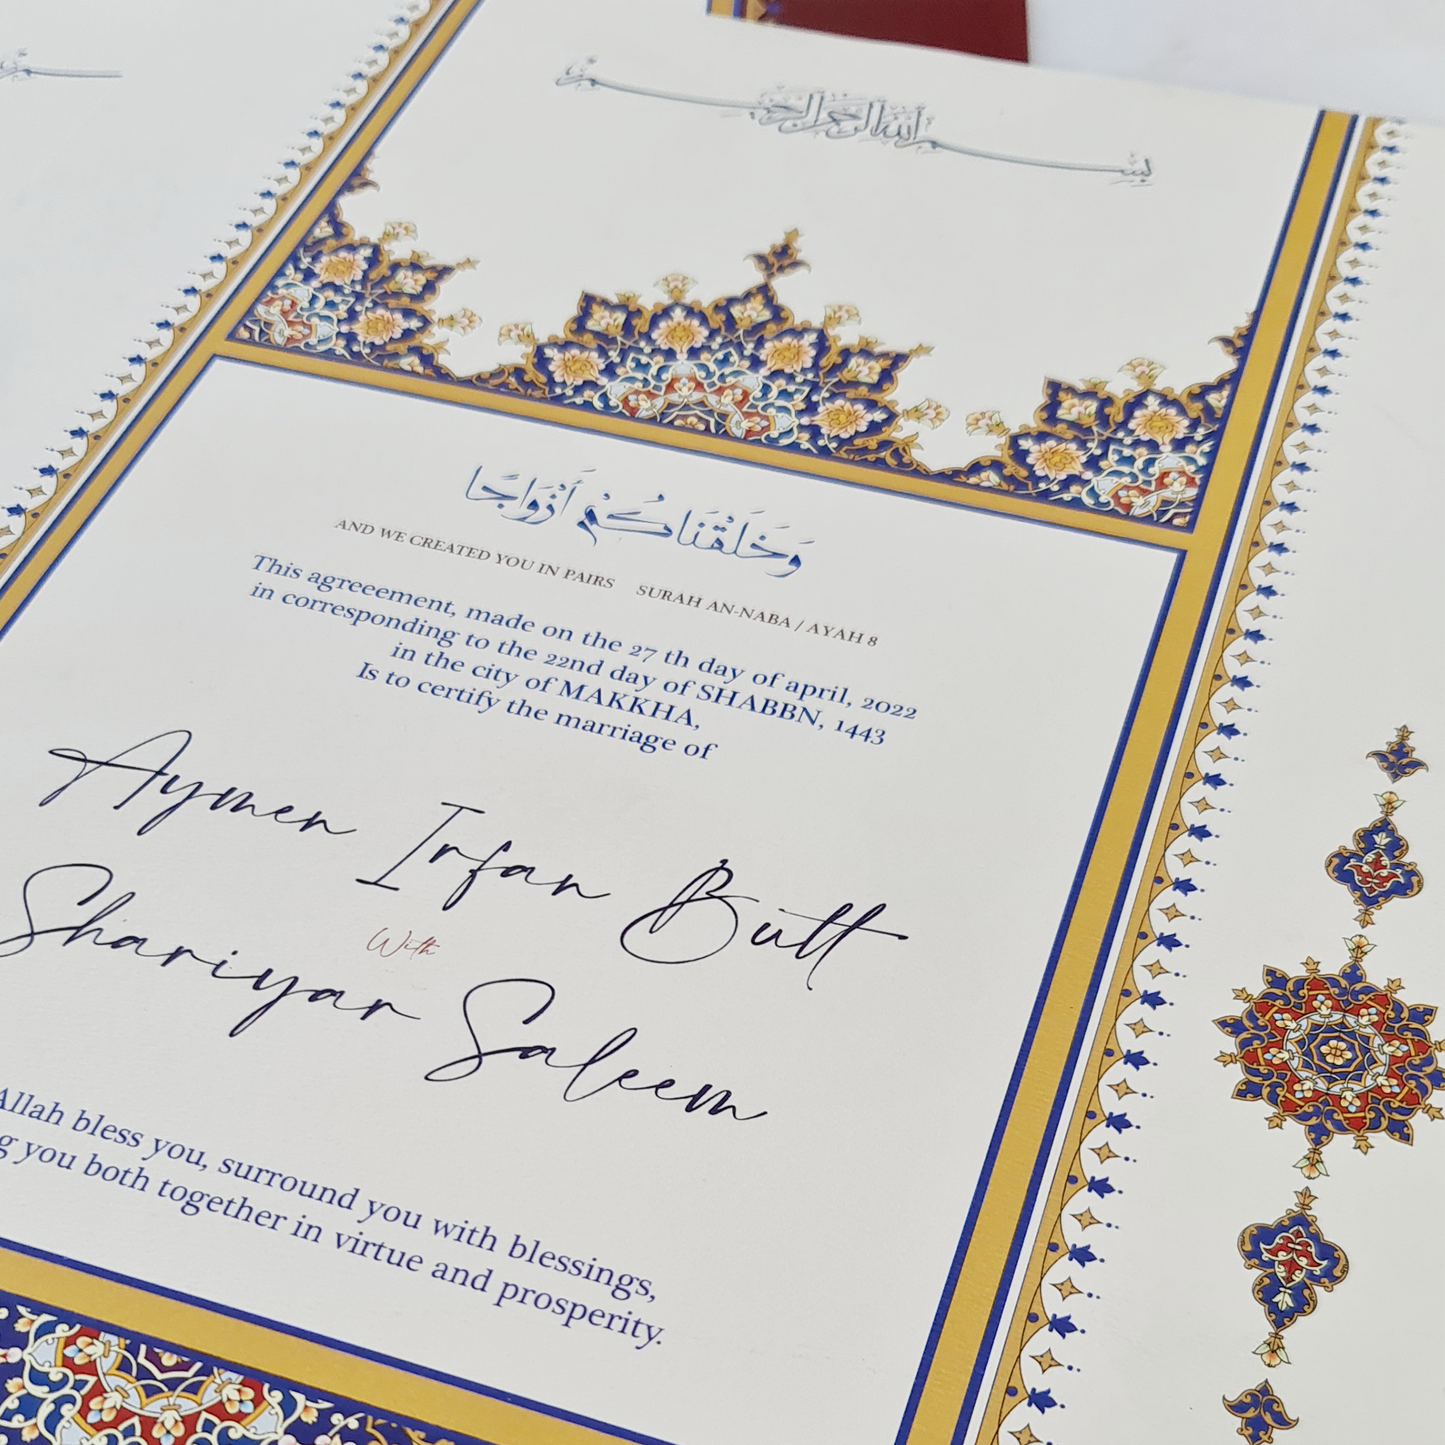 بسم الله الرحمن الرحيم
وَخَلَقْنَاكُمْ أَزْوَاجًا
AND WE CREATED YOU IN PAIRS SURAH AN-NABA / AYAH 8
This agreeement, made on the 27 th day of april, 2022
in corresponding to the 22nd day of SHABBN, 1443
in the city of MAKKHA,
Is to certify the marriage of
Aymen Irfan Butt
With
Shariyar Saleem
Allah bless you, surround you with blessings,
you both together in virtue and prosperity.